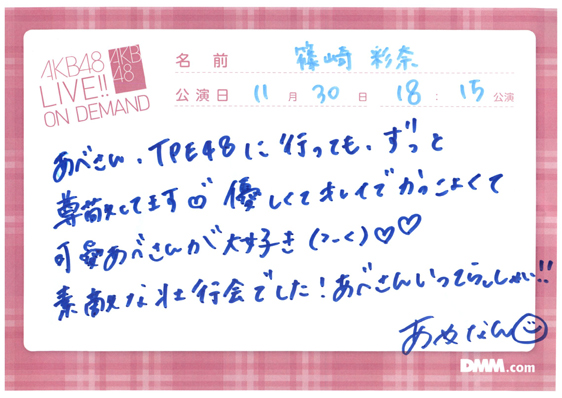 AKB48
LIVE!!
ON DEMAND
AKB
48
名前 篠崎 彩奈
公演日 11月30日 18:15公演
あべさん、TPE48に行っても、ずっと
尊敬してます♡ 優しくてキレイでかっこよくて
可愛いあべさんが大好き(つ-く)♡♡
素敵な壮行会でした!あべさんいってらっしゃい!!
あやなん
DMM.com